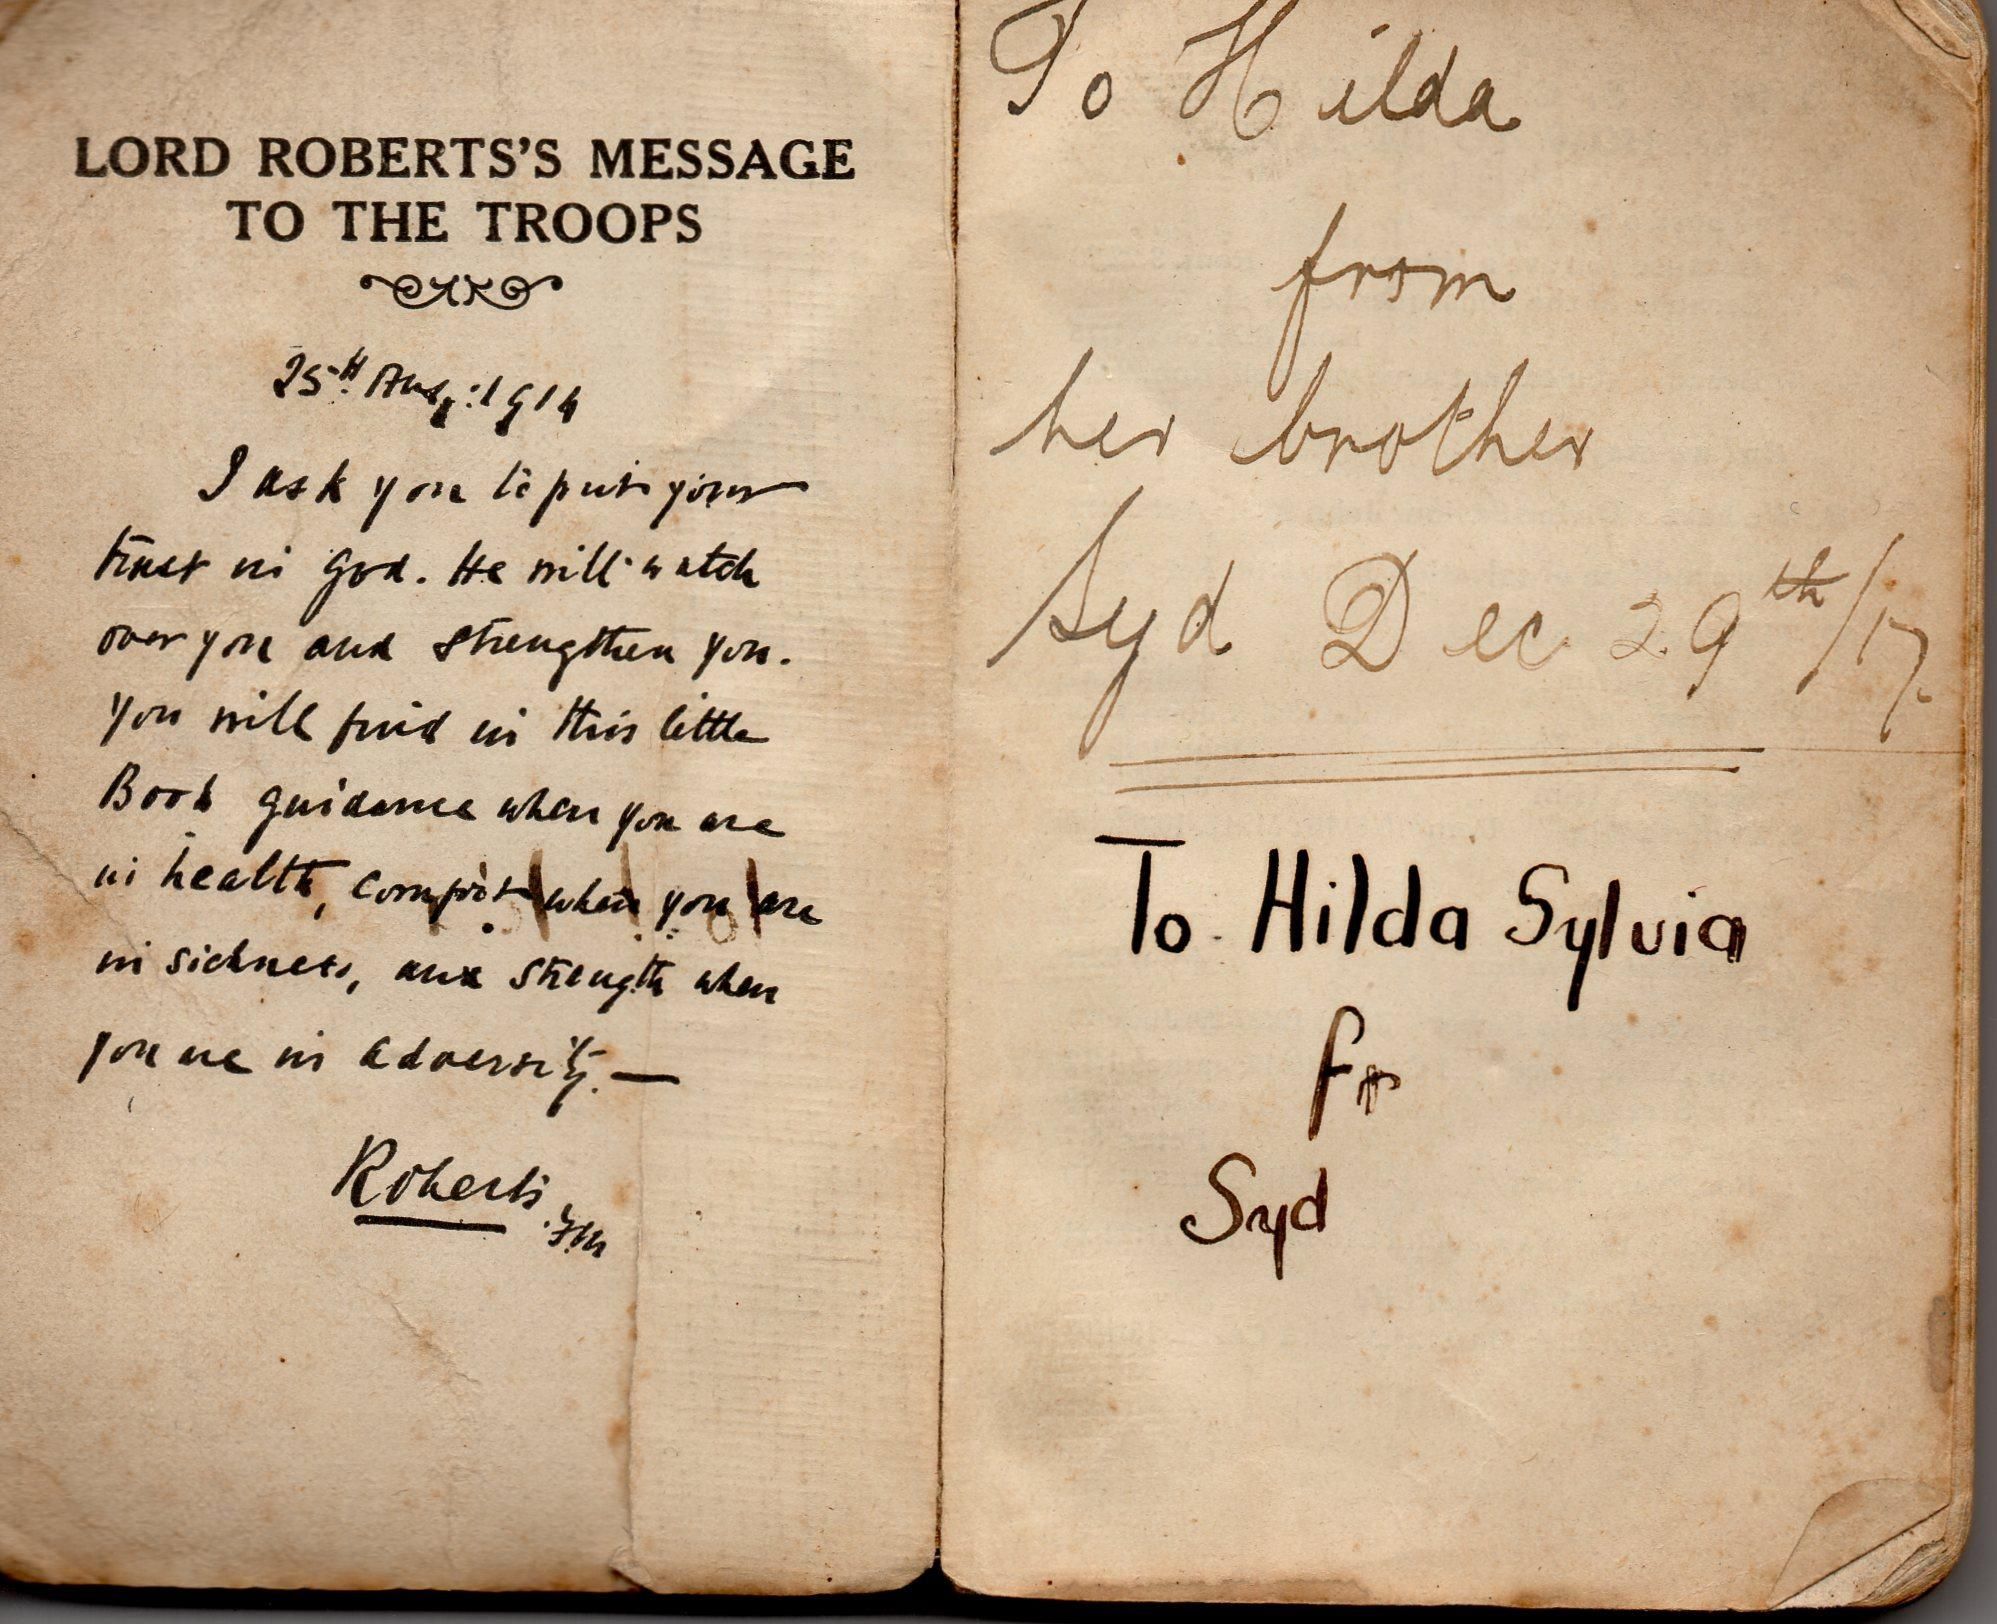 LORD ROBERTS'S MESSAGE
TO THE TROOPS
25th Aug: 1914
I ask you to put your
trust in God. He will watch
over you and strengthen you.
You will find in this little
Book guidance when you are
in health, comfort when you are
in sickness, and strength when
you are in adversity. —
Roberts. FM
To Hilda
from
her brother
Syd Dec 29th/17.
To Hilda Sylvia
fr
Syd